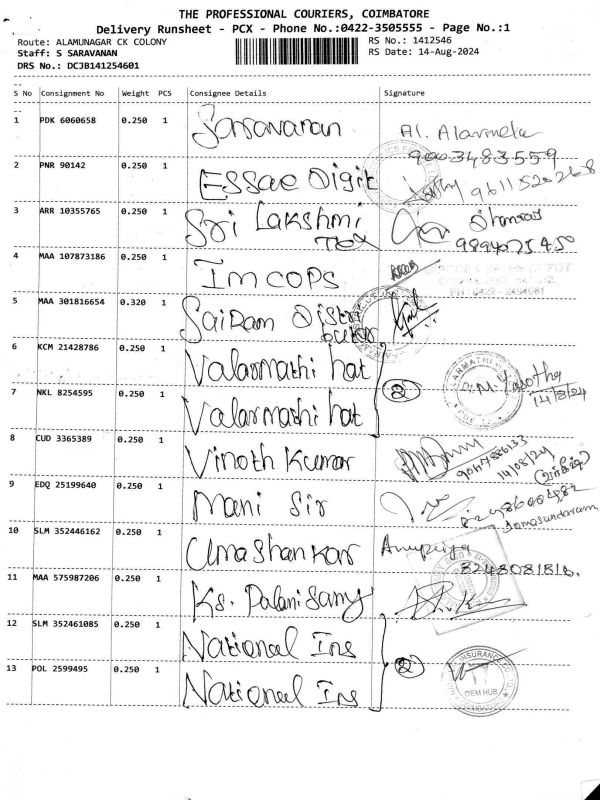 THE PROFESSIONAL COURIERS, COIMBATORE
Delivery Runsheet - PCX - Phone No.:0422-3505555 - Page No.:1
Route: ALAMUNAGAR CK COLONY
Staff: S SARAVANAN
DRS No.: DCJB141254601
RS No.: 1412546
RS Date: 14-Aug-2024
S No Consignment No Weight PCS Consignee Details Signature
1 PDK 6060658 0.250 1 Saravanan Al. Alarmelu
9003483559
2 PNR 90142 0.250 1 Essae Digit
3 ARR 10355765 0.250 1 Sri Lakshmi
Tex
4 MAA 107873186 0.250 1 Imcops
5 MAA 301816654 0.320 1 Sairam Distri
butor
6 KCM 21428786 0.250 1 Valarmathi hat
7 NKL 8254595 0.250 1 Valarmathi hat
2
14/8/24
8 CUD 3365389 0.250 1 Vinoth Kumar
14/08/24
9 EDQ 25199640 0.250 1 Mani Sir
Somasundaram
10 SLM 352446162 0.250 1 Umashankar
11 MAA 575987206 0.250 1 Ks. Palanisamy
12 SLM 352461085 0.250 1 National Ins
13 POL 2599495 0.250 1 National Ins
2
DEM HUB